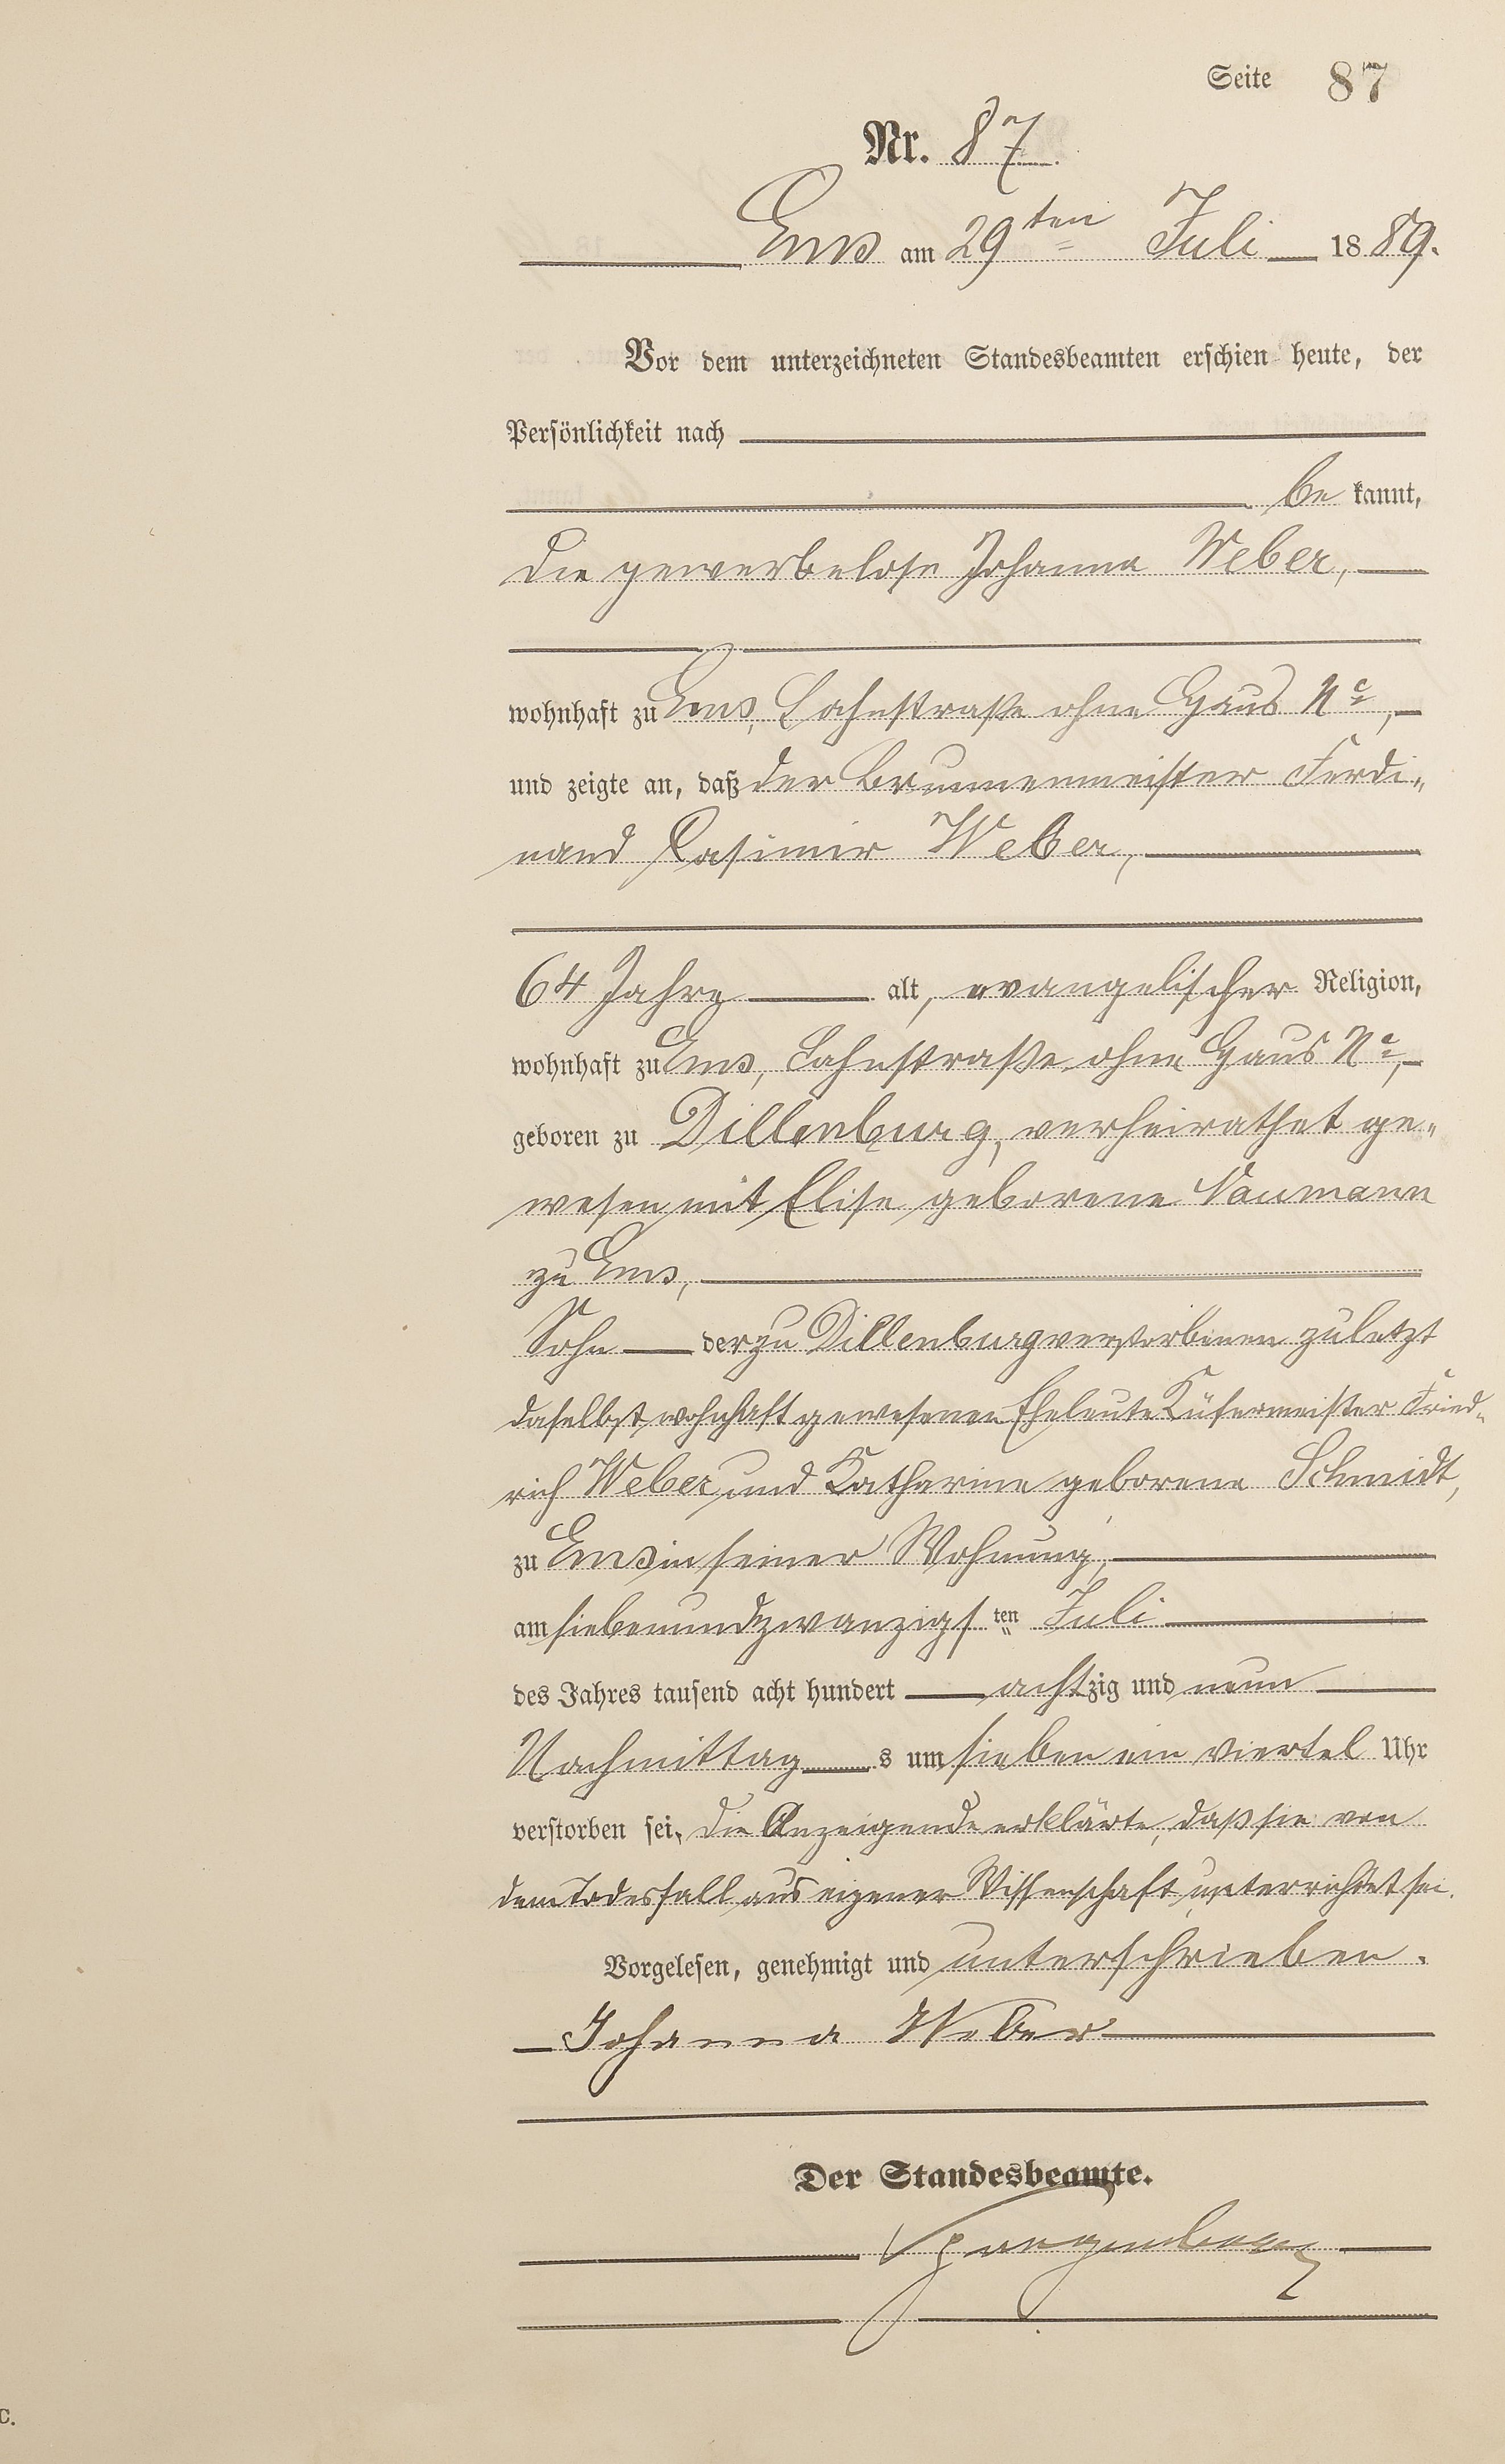 Seite 87
Nr. 87
Ems am 29ten Juli 1889.
Vor dem unterzeichneten Standesbeamten erschien heute, der
Persönlichkeit nach
be kannt,
die gewerbelose Johanna Weber,
wohnhaft zu Ems, Lahnstraße ohne Haus No,
und zeigte an, daß der Brunnenmeister Ferdi„
nand Casimir Weber,
64 Jahre alt, evangelischer Religion,
wohnhaft zu Ems, Lahnstraße ohne Haus No,
geboren zu Dillenburg, verheirathet ge„
wesen mit Elise geborene Naumann
zu Ems,
Sohn der zu Dillenburg verstorbenen zuletzt
daselbst wohnhaft gewesenen Eheleute Küfermeister Fried„
rich Weber und Katharine geborene Schmidt,
zu Ems in seiner Wohnung,
am siebenundzwanzigsten Juli
des Jahres tausend acht hundert achtzig und neun
Nachmittags um sieben ein viertel Uhr
verstorben sei, die Anzeigende erklärte, daß sie von
dem Todesfall aus eigener Wissenschaft unterrichtet sei.
Vorgelesen, genehmigt und unterschrieben.
Johanna Weber
Der Standesbeamte.
C.